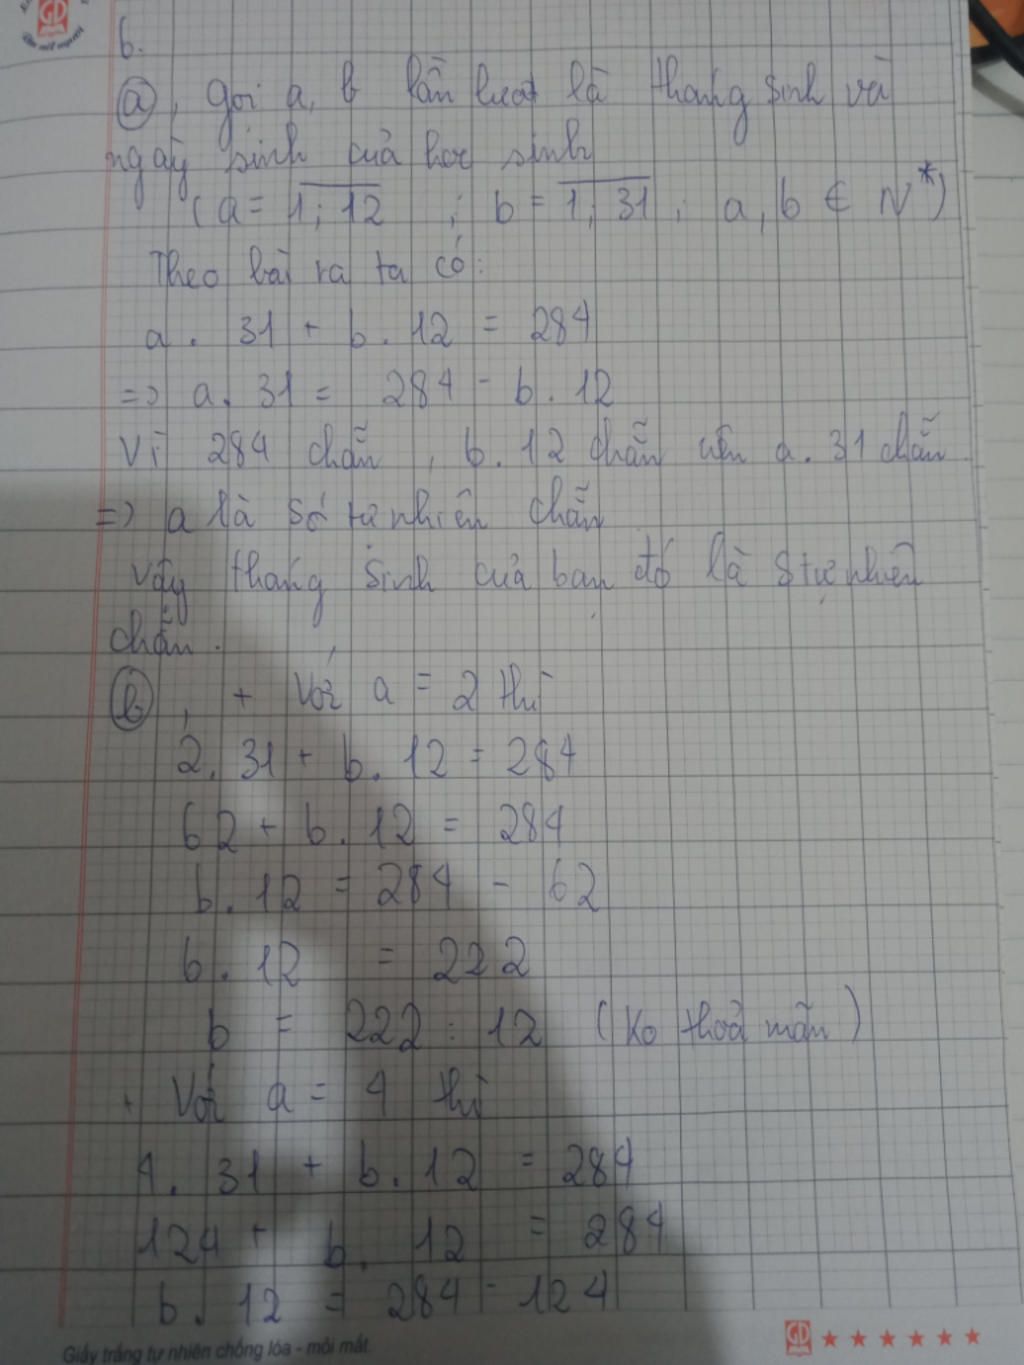 GD
6.
a, gọi a, b lần lượt là tháng sinh và
ngày sinh của học sinh
(a = 1; 12 ; b = 1; 31; a, b ∈ N*)
Theo bài ra ta có:
a. 31 + b. 12 = 284
=> a. 31 = 284 - b. 12
Vì 284 chẵn, b. 12 chẵn nên a. 31 chẵn
=> a là số tự nhiên chẵn
Vậy tháng sinh của bạn đó là số tự nhiên
chẵn.
b, + Với a = 2 thì
2. 31 + b. 12 = 284
62 + b. 12 = 284
b. 12 = 284 - 62
b. 12 = 222
b = 222 : 12 (Ko thoả mãn)
+ Với a = 4 thì
4. 31 + b. 12 = 284
124 + b. 12 = 284
b. 12 = 284 - 124
Giấy trắng tự nhiên chống lóa - mỏi mắt
GD